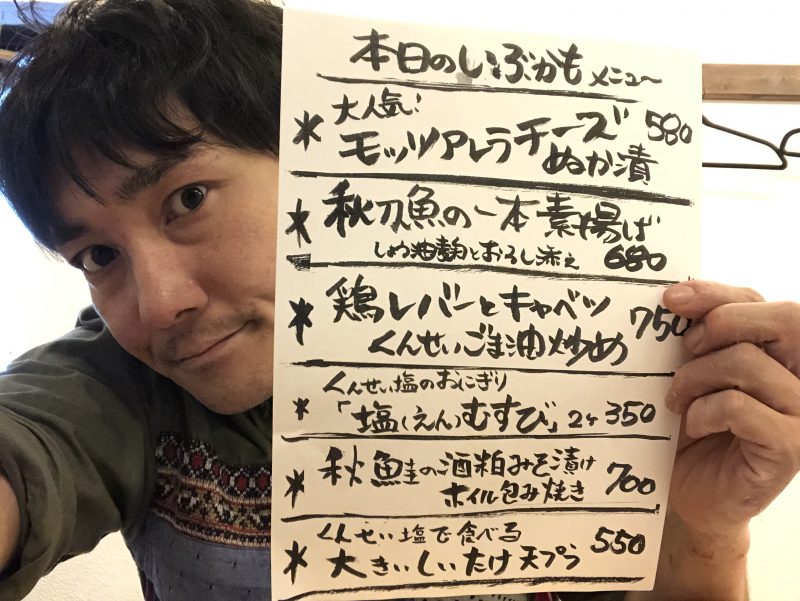 本日のいぶかもメニュー
大人気!
モッツアレラチーズ 580
ぬか漬
秋刀魚の一本素揚げ
しょう油麹とおろし添え 680
鶏レバーとキャベツ 750
くんせいごま油炒め
くんせい塩のおにぎり
「塩(えん)むすび」2ヶ 350
秋鮭の酒粕みそ漬け 700
ホイル包み焼き
くんせい塩で食べる 550
大きいしいたけ天プラ